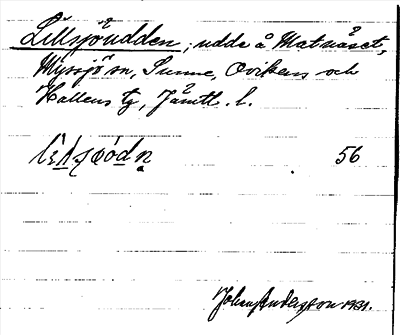 Lillsjöudden, udde å Matnäset,
Myssjö sn, Sunne, Ovikens och
Hallens tg, Jämtl. l.
56
Johan Anderson 1931.